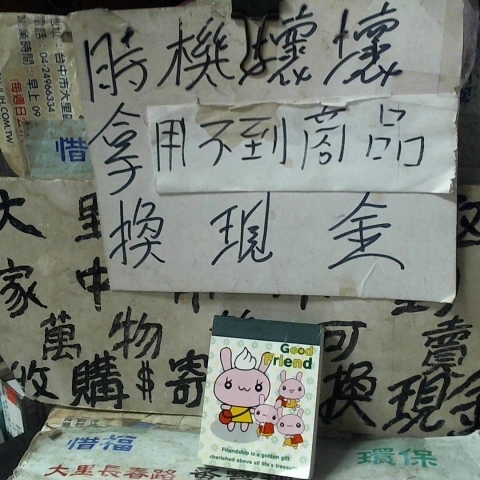 時機壞壞
拿用不到商品
換現金
地址：台中市大里
電話：04249663
營業時間：早上9
每週日
H.COM.TW
惜
大里
家中
萬物 可賣
收購$寄 換現金
Good
Friend
Friendship is a golden gift
cherished above all life's treasu
惜福
環保
大里長春路